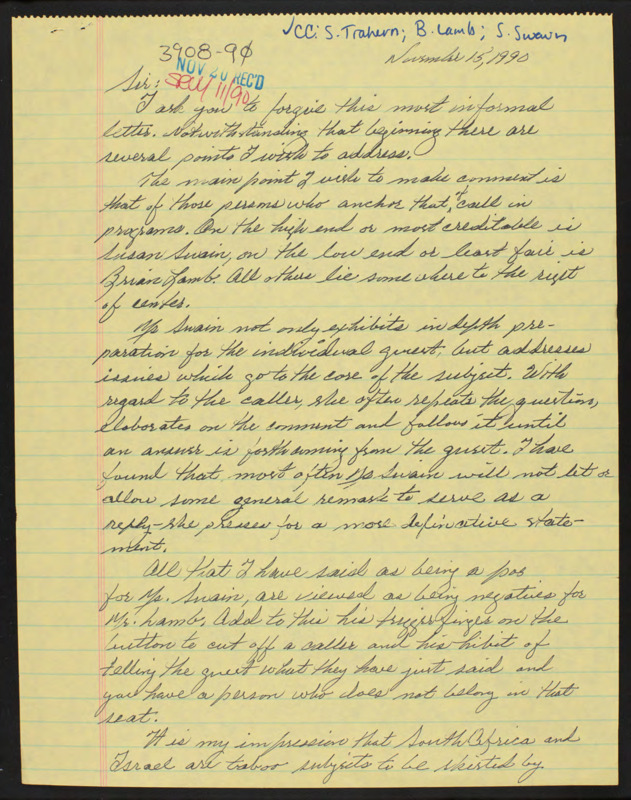 ✓CC: S. Trahern; B. Lamb; S. Swain
November 15, 1990
3908-90
NOV 20 REC'D
11/90
Sir:
I ask you to forgive this most informal
letter. Notwithstanding that beginning there are
several points I wish to address.
The main point I wish to make comment is
that of those persons who anchor that "call in
programs. On the high end or most creditable is
Susan Swain, on the low end or least fair is
Brian Lamb. All others lie somewhere to the right
of center.
Ms Swain not only exhibits in depth pre-
paration for the individual guest, but addresses
issues which go to the core of the subject. With
regard to the caller, she often repeats the question,
elaborates on the comment and follows it until
an answer is forthcoming from the guest. I have
found that most often Ms Swain will not let or
allow some general remark to serve as a
reply-she presses for a more definative state-
ment.
All that I have said as being a pos
for Ms. Swain, are viewed as being negatives for
Mr. Lamb. Add to this his trigger finger on the
button to cut off a caller and his hibit of
telling the guest what they have just said and
you have a person who does not belong in that
seat.
It is my impression that South Africa and
Israel are taboo subjects to be skirted by